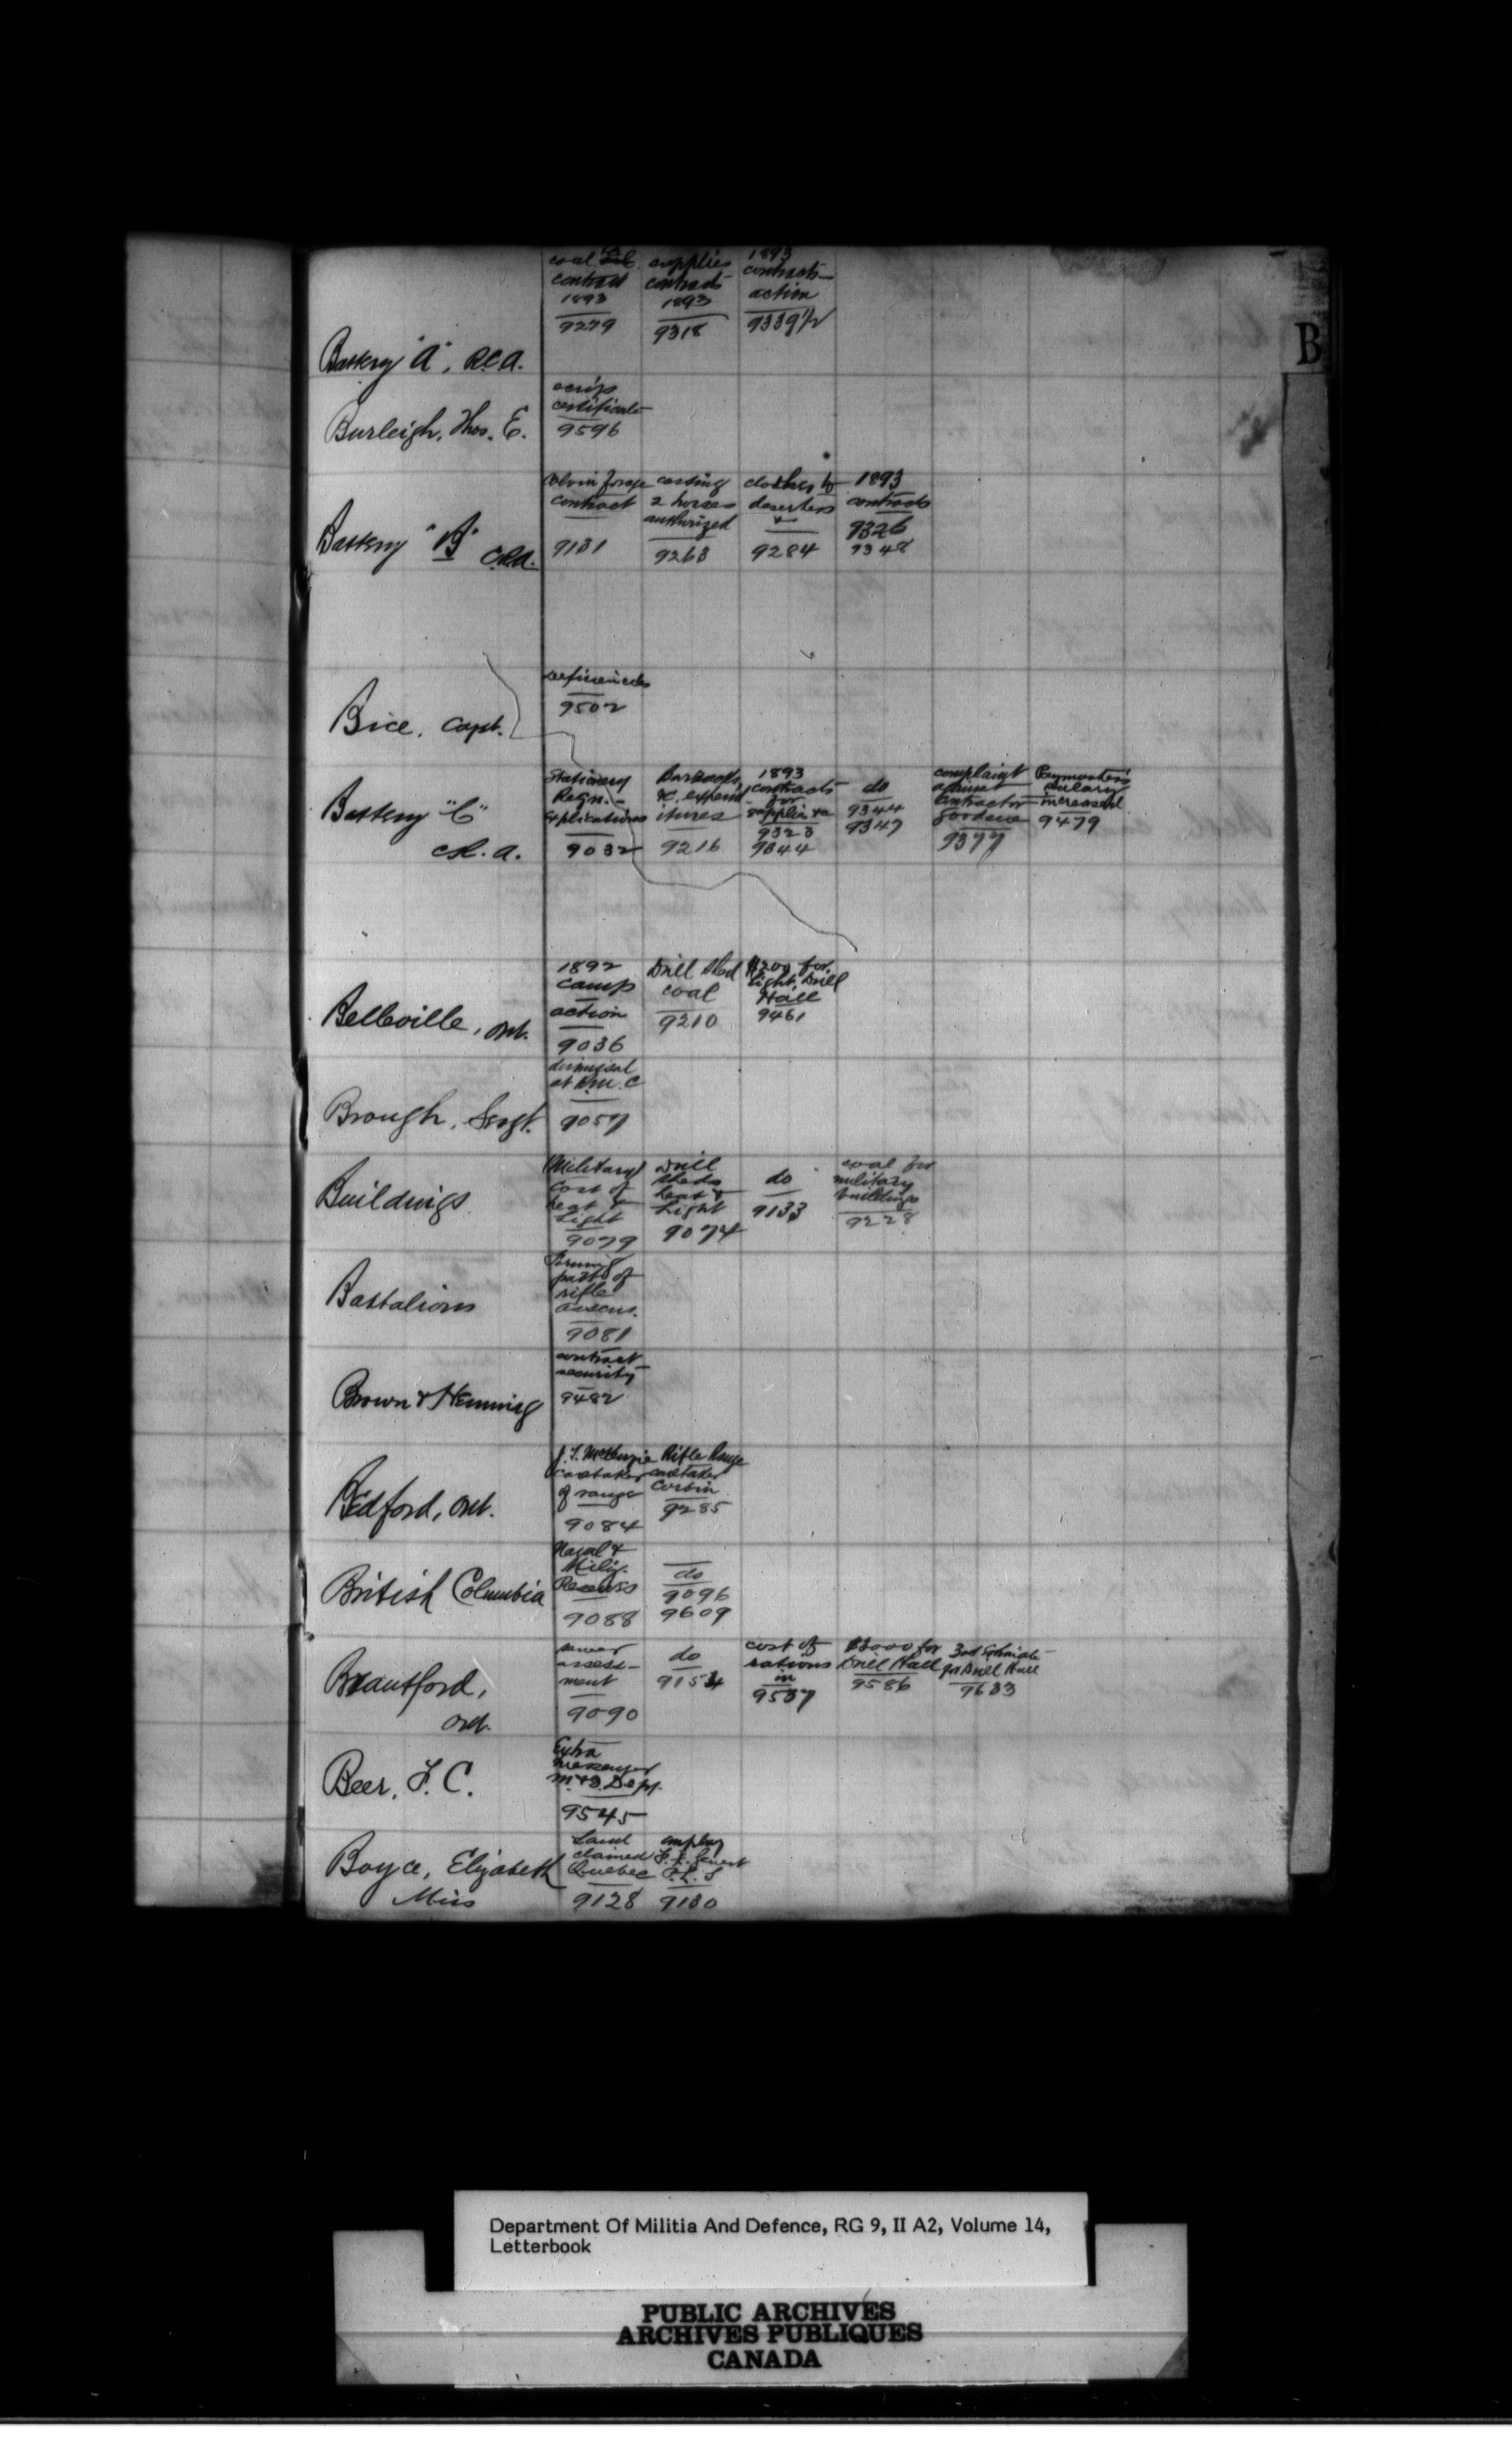 B
coal contract 1893 9279
supplies contracts 1893 9318
1893 contracts action 9339½
Battery "A", R.C.A.
scrip certificate 9596
Burleigh, Thos. E.
forage contract 9131
casting 2 horses authorized 9263
clothes to deserters 9284
1893 contracts 9326 9348
Battery "B" C.A.
deficiencies 9502
Bice, Capt.
Stationery Regn. - applications 9032
Barracks, &c. expenditures 9216
1893 contracts for supplies &c 9323 9344
do 9344 9347
complaint against contractor goodeve 9377
Paymaster's salary increased 9479
Battery "C"
C.A.
1892 camp action 9036
Drill shed coal 9210
$200 for light, Drill Hall 9461
Belleville, Ont.
dismissal at R.M.C 9057
Brough, Sergt.
(Military) cost of heat & light 9079
Drill sheds heat & light 9074
do 9133
coal for military buildings 9228
Buildings
Forming part of rifle assocns. 9081
Battalions
contract security 9482
Brown & Hemming
J. T. McKenzie caretaker of range 9084
Rifle Range caretaker Corbin 9285
Bedford, Ont.
Naval & Mility. Reserves 9088
do 9096 9609
British Columbia
sewer assessment 9090
do 9154
cost of rations in 9507
$3000 for Drill Hall 9586
3rd Estimate for Drill Hall 9633
Brantford,
Ont.
Extra messenger M. & D. Dept. 9545
Beer, F. C.
Land claimed Quebec 9128
employ P.L.S 9130
Boyce, Elizabeth
Miss
Department Of Militia And Defence, RG 9, II A2, Volume 14,
Letterbook
PUBLIC ARCHIVES
ARCHIVES PUBLIQUES
CANADA